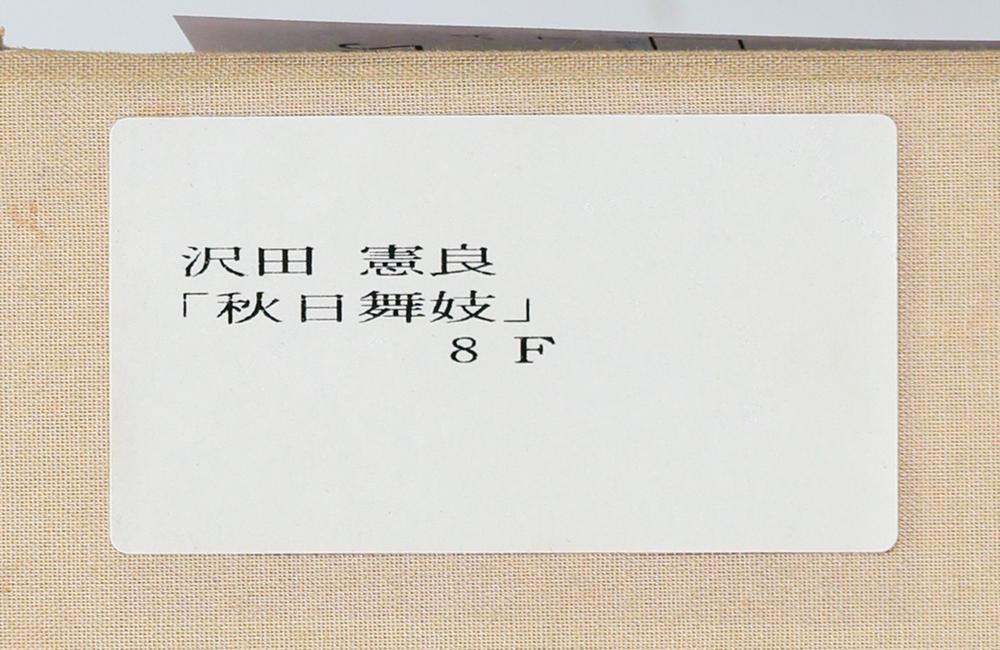 沢田 憲良
「秋日舞妓」
8 F